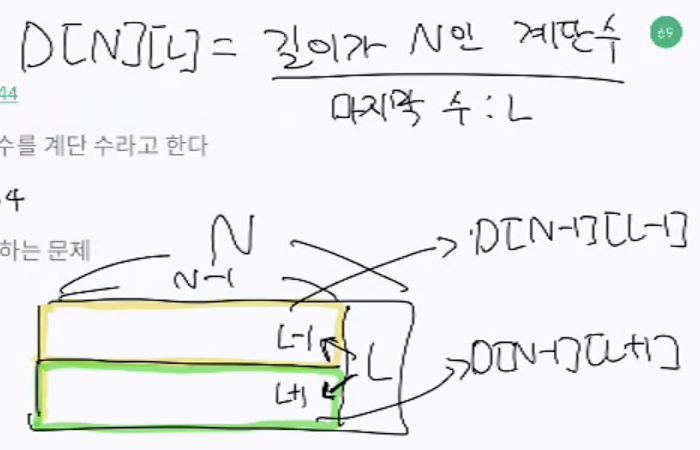 D[N][L] = 길이가 N인 계단수
69
마지막 수 : L
44
수를 계단 수라고 한다
4
하는 문제
N
N-1
D[N-1][L-1]
L-1
L
L+1
D[N-1][L+1]